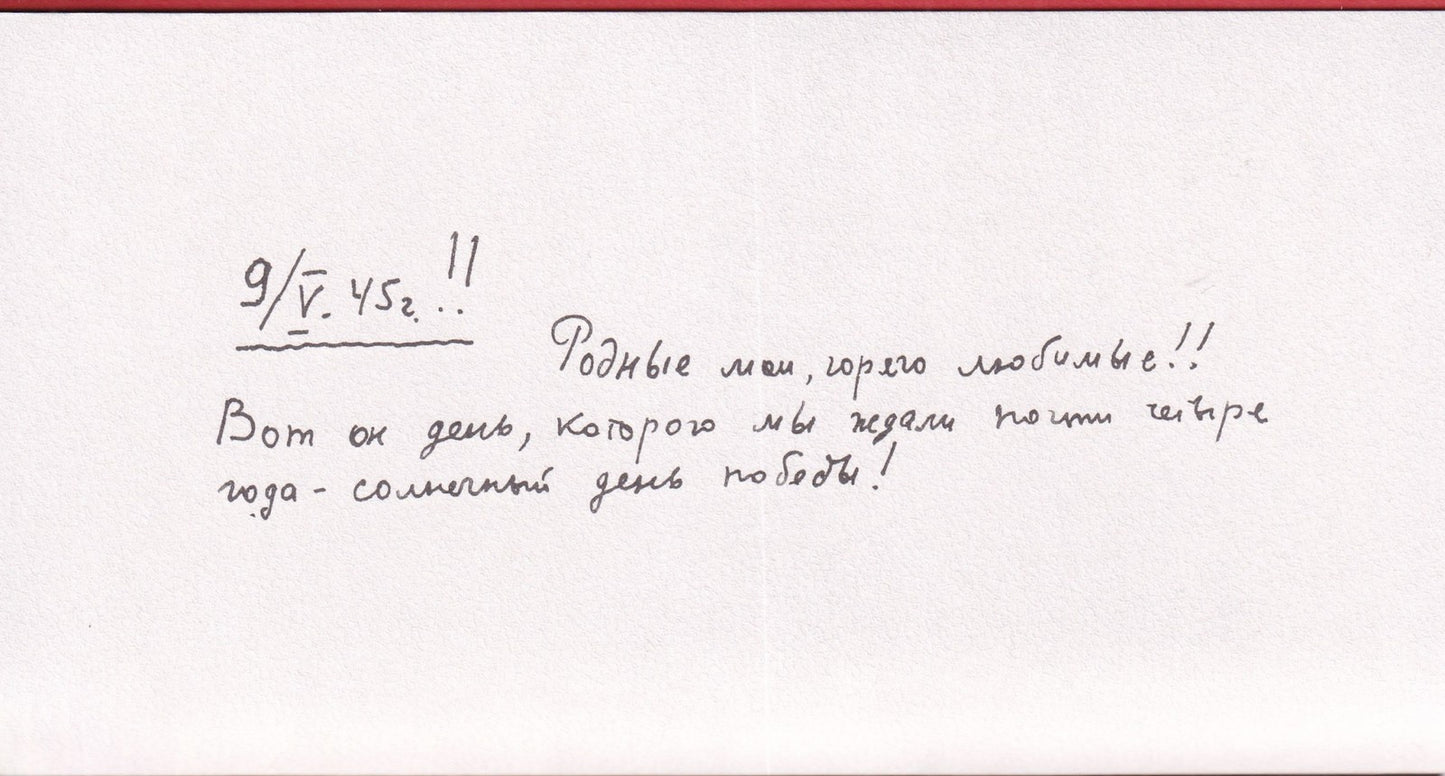 9/V. 45г. !!
Родные мои, горячо любимые!!
Вот он день, которого мы ждали почти четыре
года - солнечный день победы!